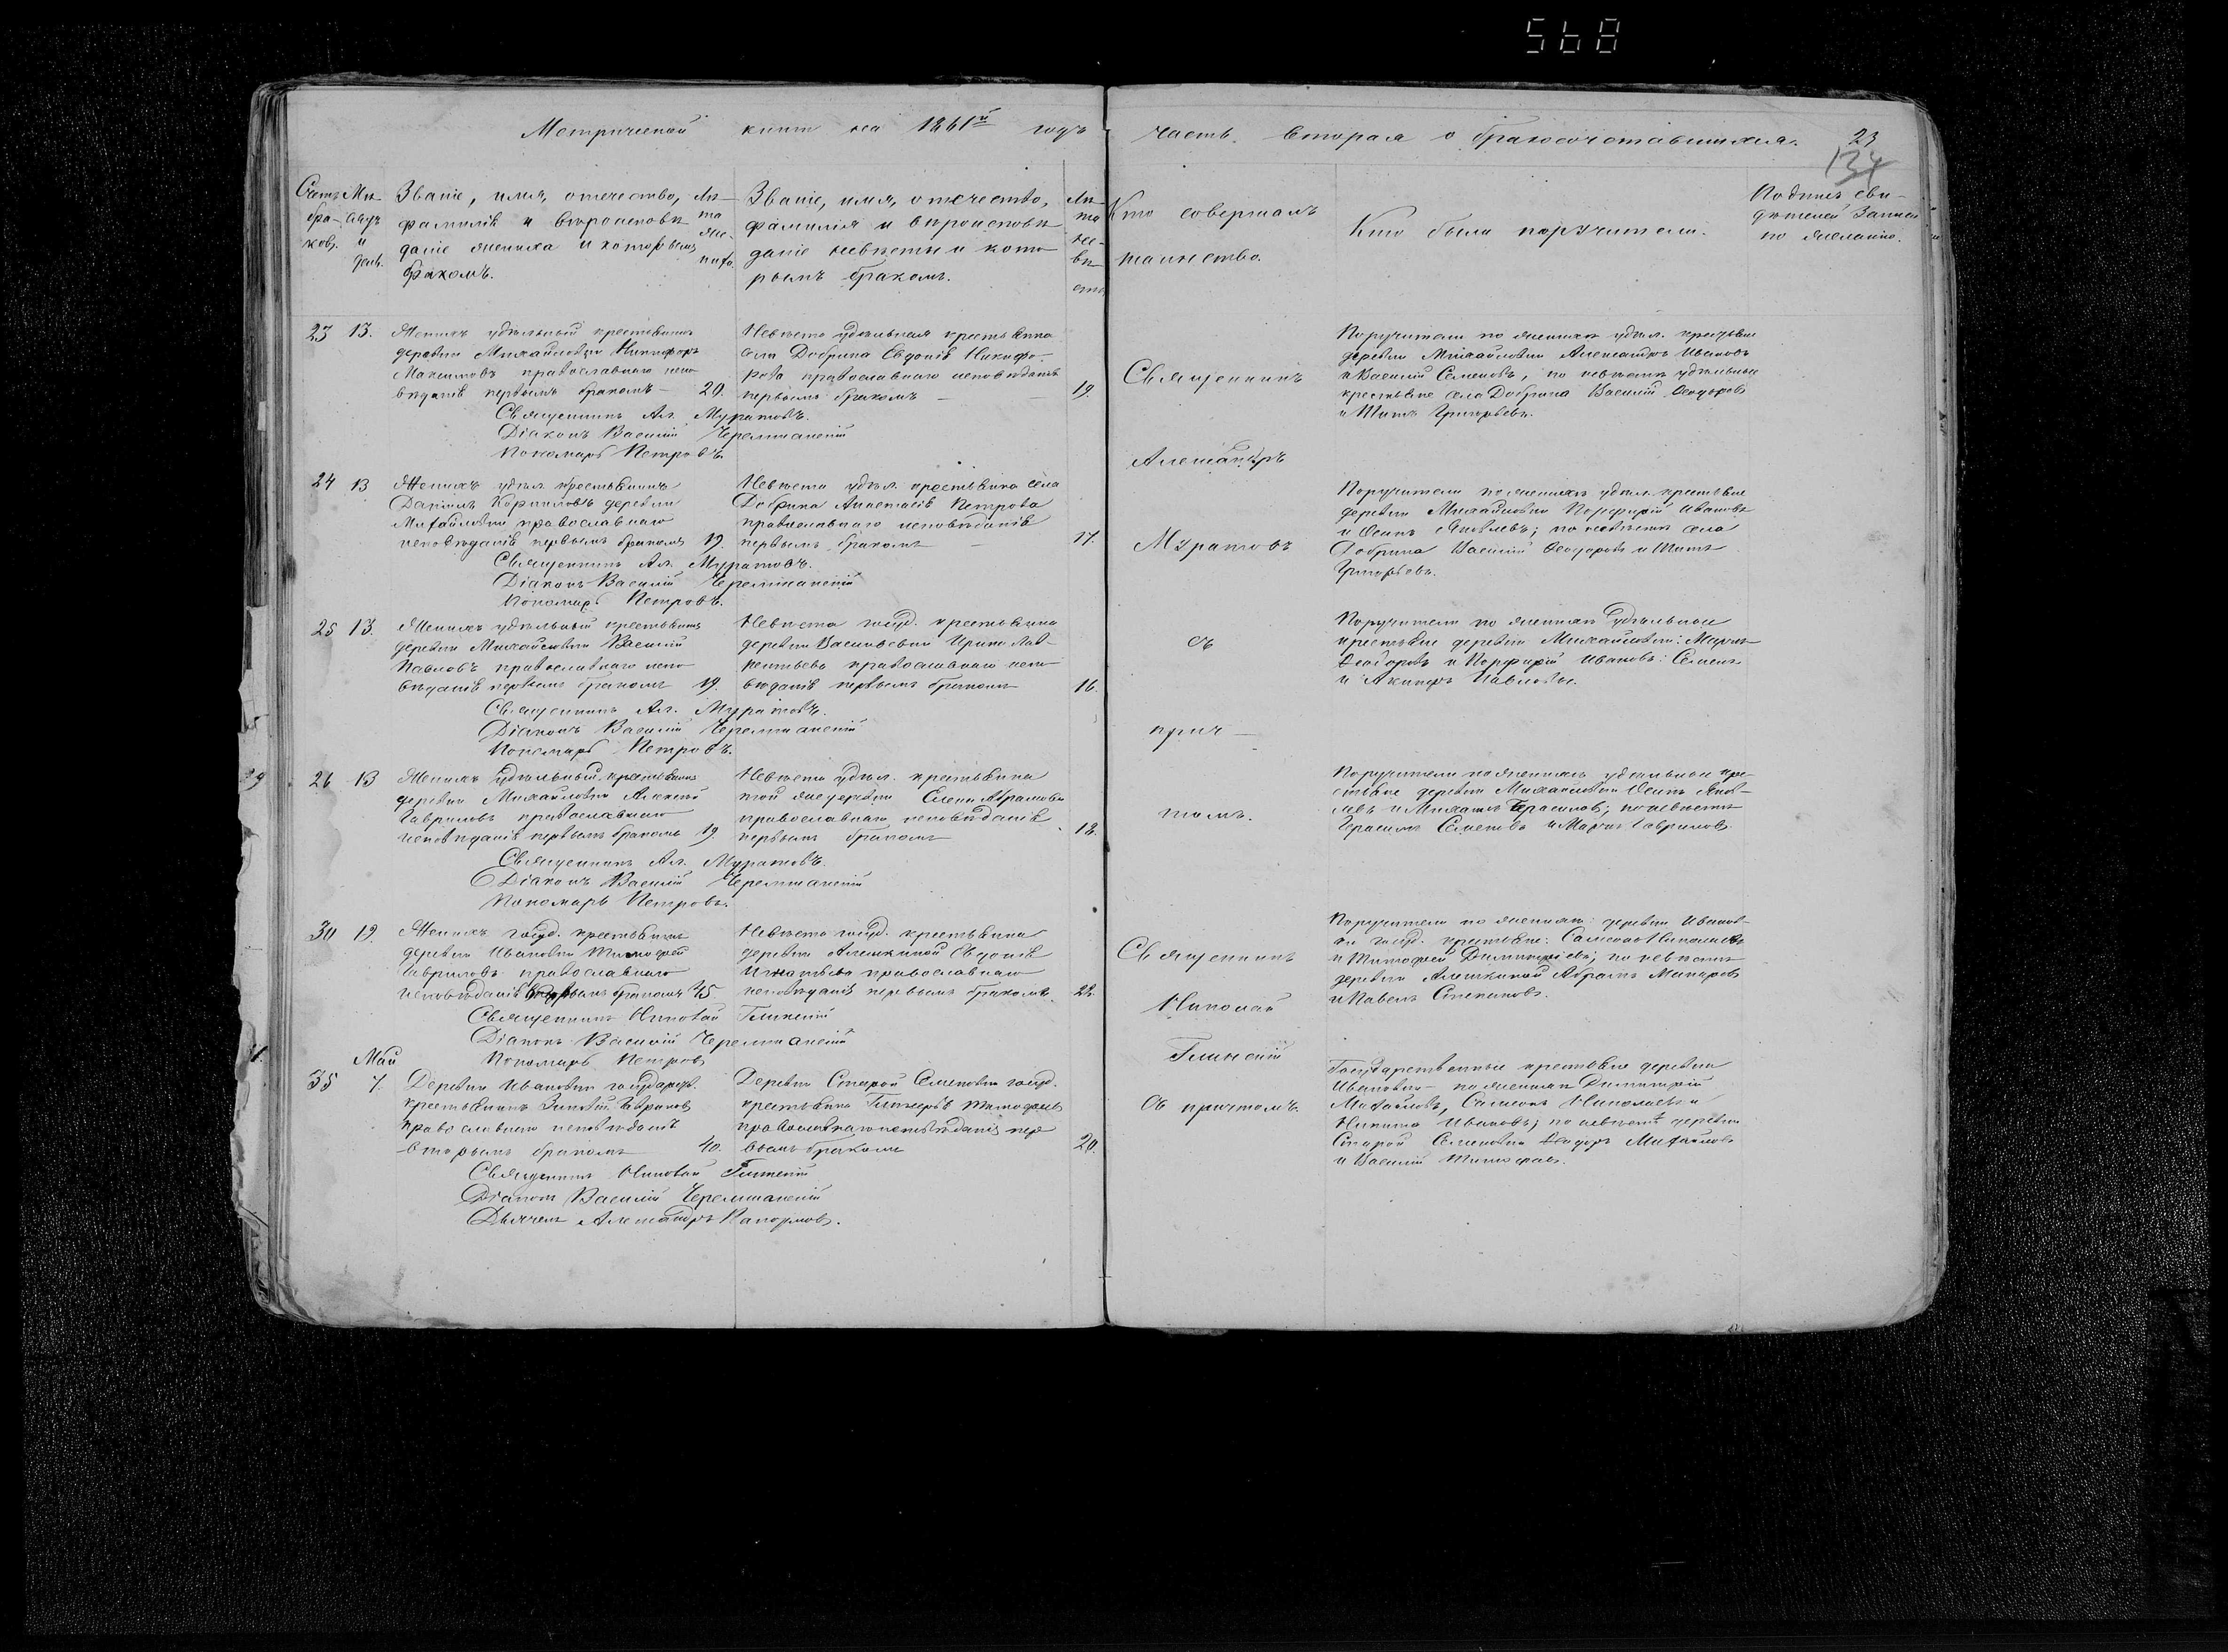 568
Метрической книги на 1861й годъ
часть вторая о бракосочетавшихся.
23
134
Счетъ браковъ.
Мѣсяцъ и день.
Званіе, имя, отечество,
фамилія и вѣроисповѣ
даніе жениха и которымъ
бракомъ.
Лѣта жениха.
Званіе, имя, отечество,
фамилія и вѣроисповѣ
даніе невѣсты и кото
рымъ бракомъ.
Лѣта невѣсты
Кто совершалъ
таинство.
Кто были поручители.
Подпись сви-
дѣтелей записи
по желанію.
23 13. Женихъ удѣльный крестьянинъ
деревни Михайловки Никифоръ
Максимовъ православнаго испо
вѣданія первымъ бракомъ 20.
Невѣста удѣльная крестьянка
села Добрина Евдокія Никифо-
рова православнаго исповѣданія
первымъ бракомъ 19.
Священникъ Ал. Муратовъ.
Діаконъ Василій Черемшанскій
Пономарь Петровъ.
Поручители по женихѣ удѣл. крестьяне
деревни Михайловки Александръ Ивановъ
и Василій Семеновъ, по невѣстѣ удѣльные
крестьяне села Добрина Василій Ѳеодоровъ
и Титъ Григорьевъ.
24 13 Женихъ удѣл. крестьянинъ
Даніилъ Корниловъ деревни
Михайловки православнаго
исповѣданія первымъ бракомъ 19.
Невѣста удѣл. крестьянка села
Добрина Анастасія Петрова
православнаго исповѣданія
первымъ бракомъ 17.
Священникъ Ал. Муратовъ.
Діаконъ Василій Черемшанскій
Пономарь Петровъ.
Поручители по женихѣ удѣл. крестьяне
деревни Михайловки Порфирій Ивановъ
и Осипъ Яковлевъ; по невѣстѣ села
Добрина Василій Ѳеодоровъ и Титъ
Григорьевъ.
25 13. Женихъ удѣльный крестьянинъ
деревни Михайловки Василій
Павловъ православнаго испо
вѣданія первымъ бракомъ 19.
Невѣста госуд. крестьянка
деревни Васильевки Ирина Лав-
рентьева православнаго испо
вѣданія первымъ бракомъ 16.
Священникъ Ал. Муратовъ.
Діаконъ Василій Черемшанскій
Пономарь Петровъ.
Поручители по женихѣ удѣльные
крестьяне деревни Михайловки:
Ѳеодоровъ и Порфирій Ивановъ: Семенъ
и Акинфъ Павловы.
26 13 Женихъ удѣльный крестьянинъ
деревни Михайловки Алексѣй
Гавриловъ православнаго
исповѣданія первымъ бракомъ 19.
Невѣста удѣл. крестьянка
той же деревни Елена Абрамова
православнаго исповѣданія
первымъ бракомъ 18.
Священникъ Ал. Муратовъ.
Діаконъ Василій Черемшанскій
Пономарь Петровъ.
Поручители по женихѣ удѣльные кре-
стьяне деревни Михайловки Осипъ Яков-
левъ и Михаилъ Герасимовъ; по невѣстѣ
Герасимъ Семеновъ и Гавриловъ.
Священникъ
Александръ
Муратовъ
съ
прич-
томъ.
30 19. Женихъ госуд. крестьянинъ
деревни Ивановки Тимофей
Гавриловъ православнаго
исповѣданія бракомъ 45
Невѣста госуд. крестьянка
деревни Алешкиной Евдокія
Игнатьева православнаго
исповѣданія первымъ бракомъ 22.
Священникъ Николай Глинскій
Діаконъ Василій Черемшанскій
Пономарь Петровъ
Поручители по женихѣ: деревни Иванов-
ки госуд. крестьяне: Самсонъ Николаевъ
и Тимофей Димитріевъ; по невѣстѣ
деревни Алешкиной Абрамъ Макаровъ
и Павелъ Степановъ.
Май
35 7. Деревни Ивановки государств.
крестьянинъ Зиновій Гавриловъ
православнаго исповѣданія
вторымъ бракомъ 40.
Деревни Старой Семеновки госуд.
крестьянка Гликерія Тимофеева
православнаго исповѣданія пер
вымъ бракомъ 20.
Священникъ Николай Глинскій
Діаконъ Василій Черемшанскій
Дьячекъ Александръ
Священникъ
Николай
Глинскій
съ причтомъ.
Государственные крестьяне деревни
Ивановки – по женихѣ Димитрій
Михайловъ, Самсонъ Николаевъ и
Никита Ивановъ; по невѣстѣ деревни
Старой Семеновки Ѳеодоръ Михайловъ
и Василій Тимофеевъ.